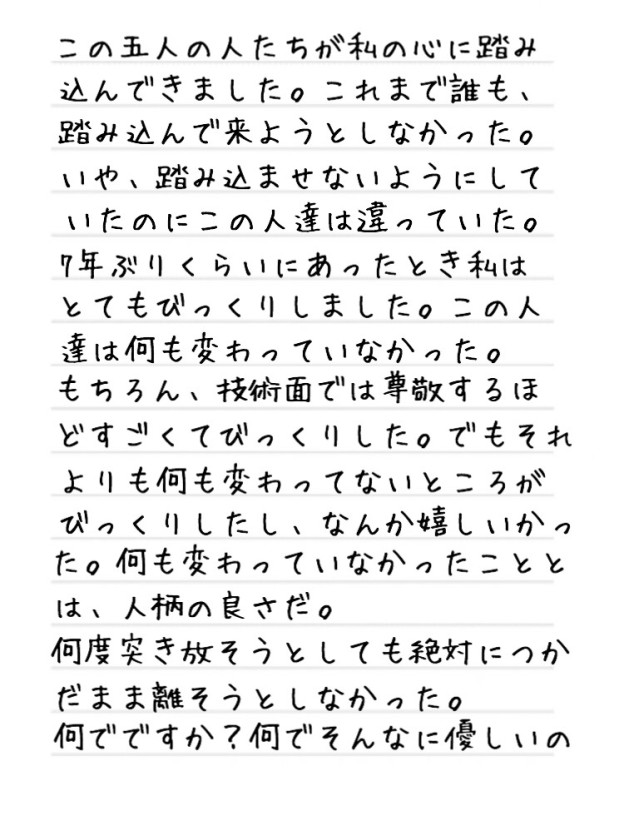 この五人の人たちが私の心に踏み
込んできました。これまで誰も、
踏み込んで来ようとしなかった。
いや、踏み込ませないようにして
いたのにこの人達は違っていた。
7年ぶりくらいにあったとき私は
とてもびっくりしました。この人
達は何も変わっていなかった。
もちろん、技術面では尊敬するほ
どすごくてびっくりした。でもそれ
よりも何も変わってないところが
びっくりしたし、なんか嬉しいかっ
た。何も変わっていなかったことと
は、人柄の良さだ。
何度突き放そうとしても絶対につか
だまま離そうとしなかった。
何でですか？何でそんなに優しいの